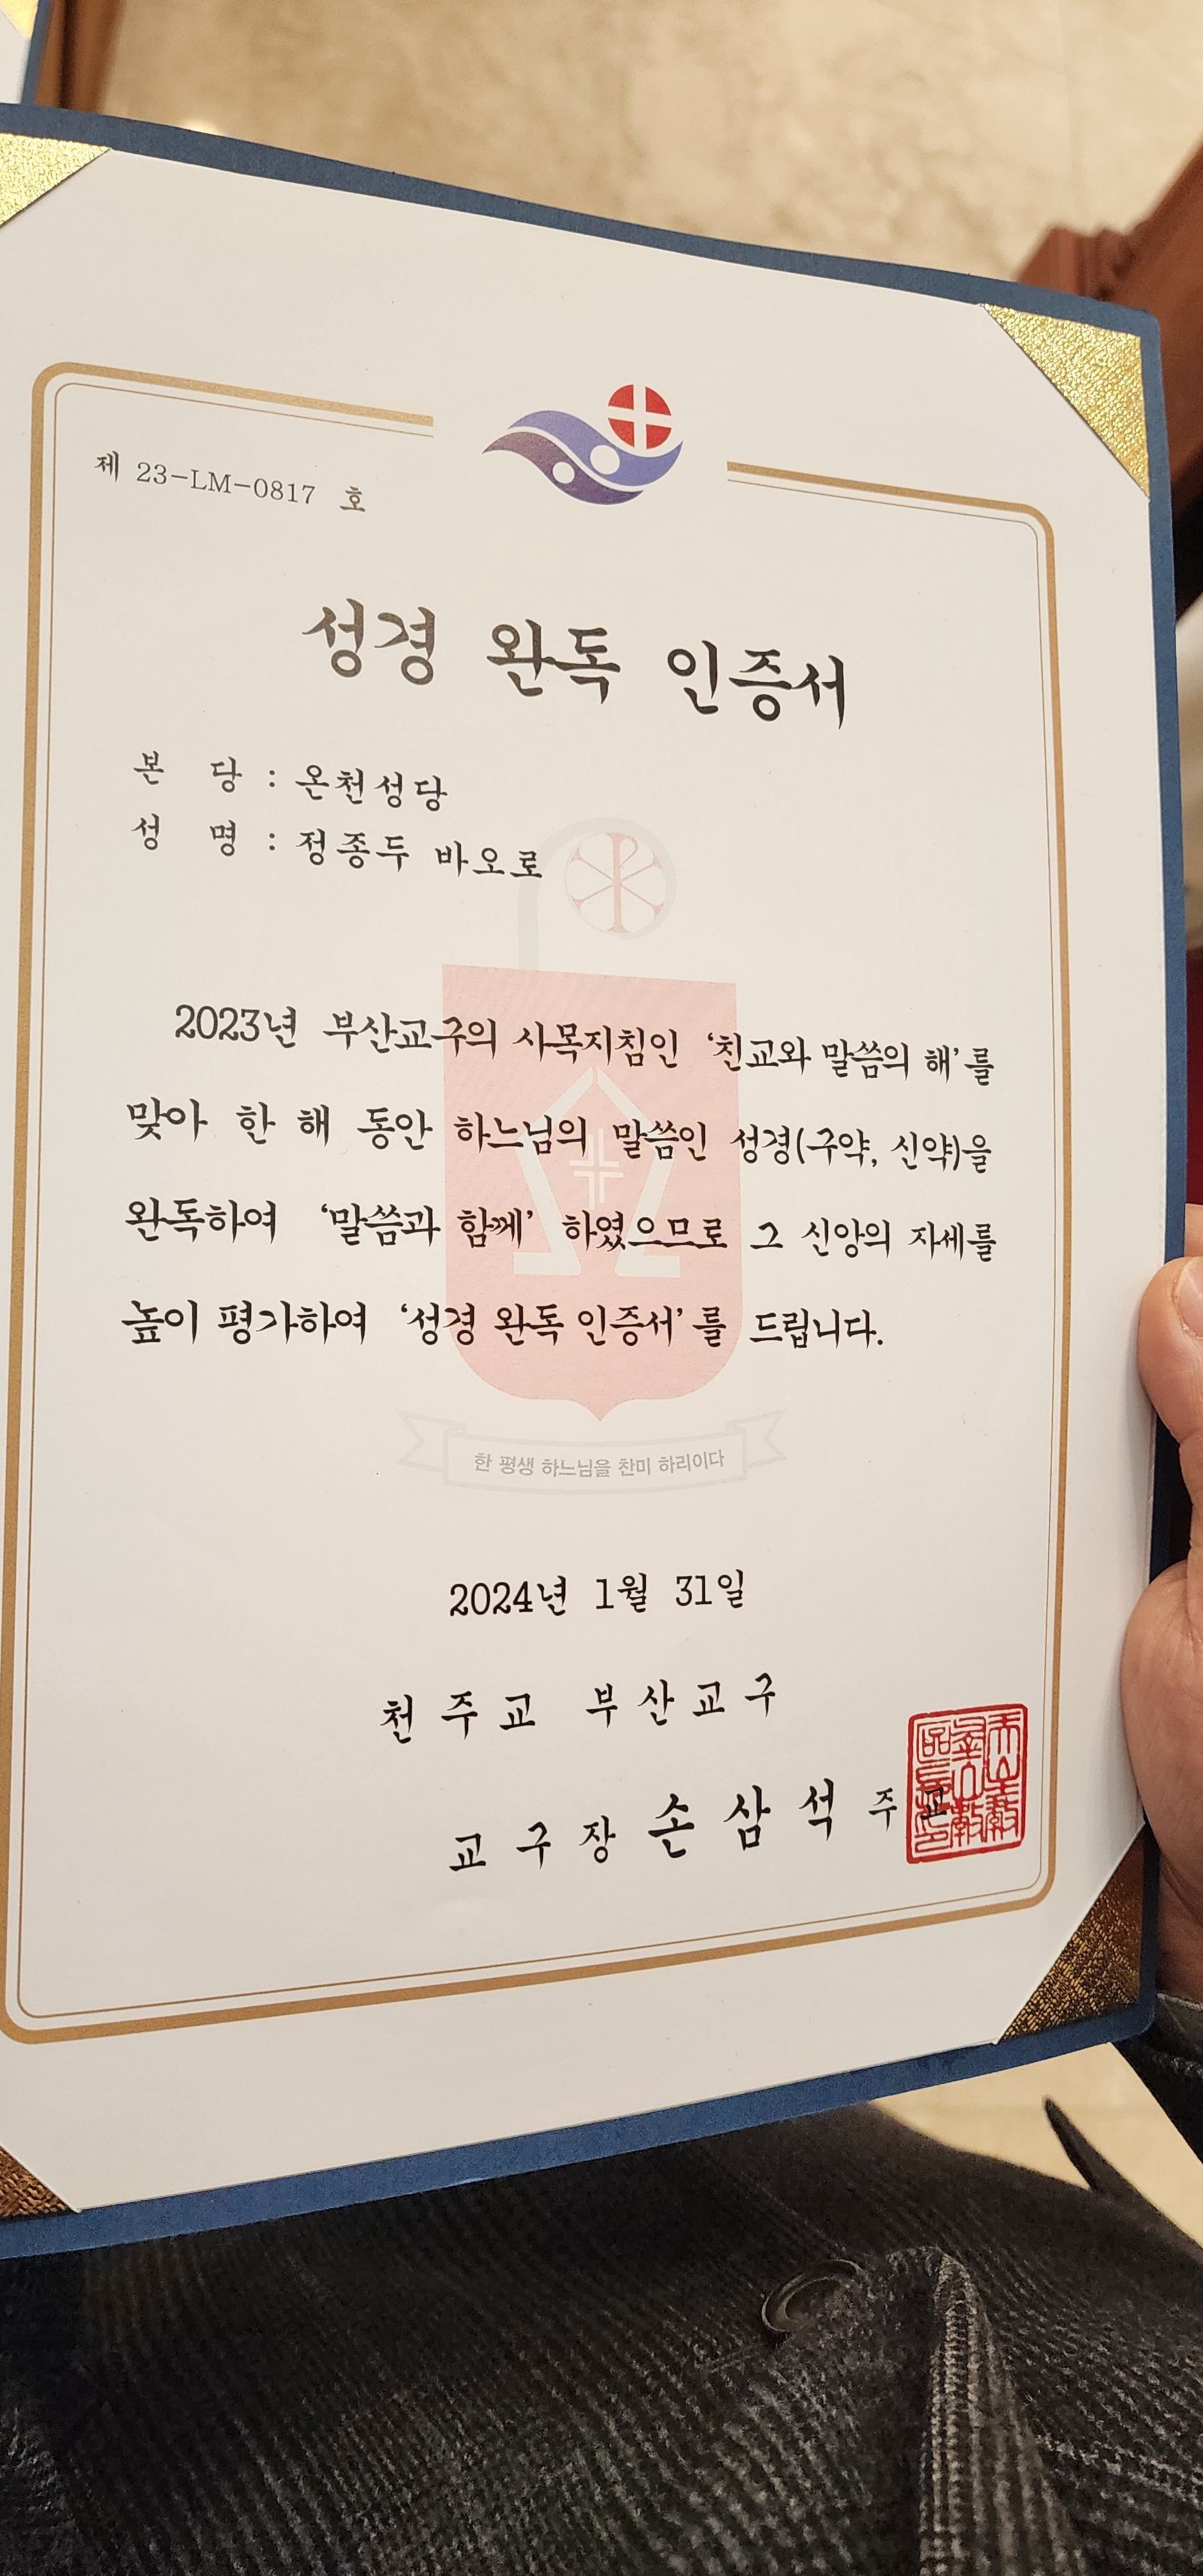 제 23-LM-0817 호
성경 완독 인증서
본 당 : 온천성당
성 명 : 정종두 바오로
2023년 부산교구의 사목지침인 ‘친교와 말씀의 해’를
맞아 한 해 동안 하느님의 말씀인 성경(구약, 신약)을
완독하여 ‘말씀과 함께’ 하였으므로 그 신앙의 자세를
높이 평가하여 ‘성경 완독 인증서’를 드립니다.
한 평생 하느님을 찬미 하리이다
2024년 1월 31일
천 주 교 부 산 교 구
교 구 장 손 삼 석 주 교